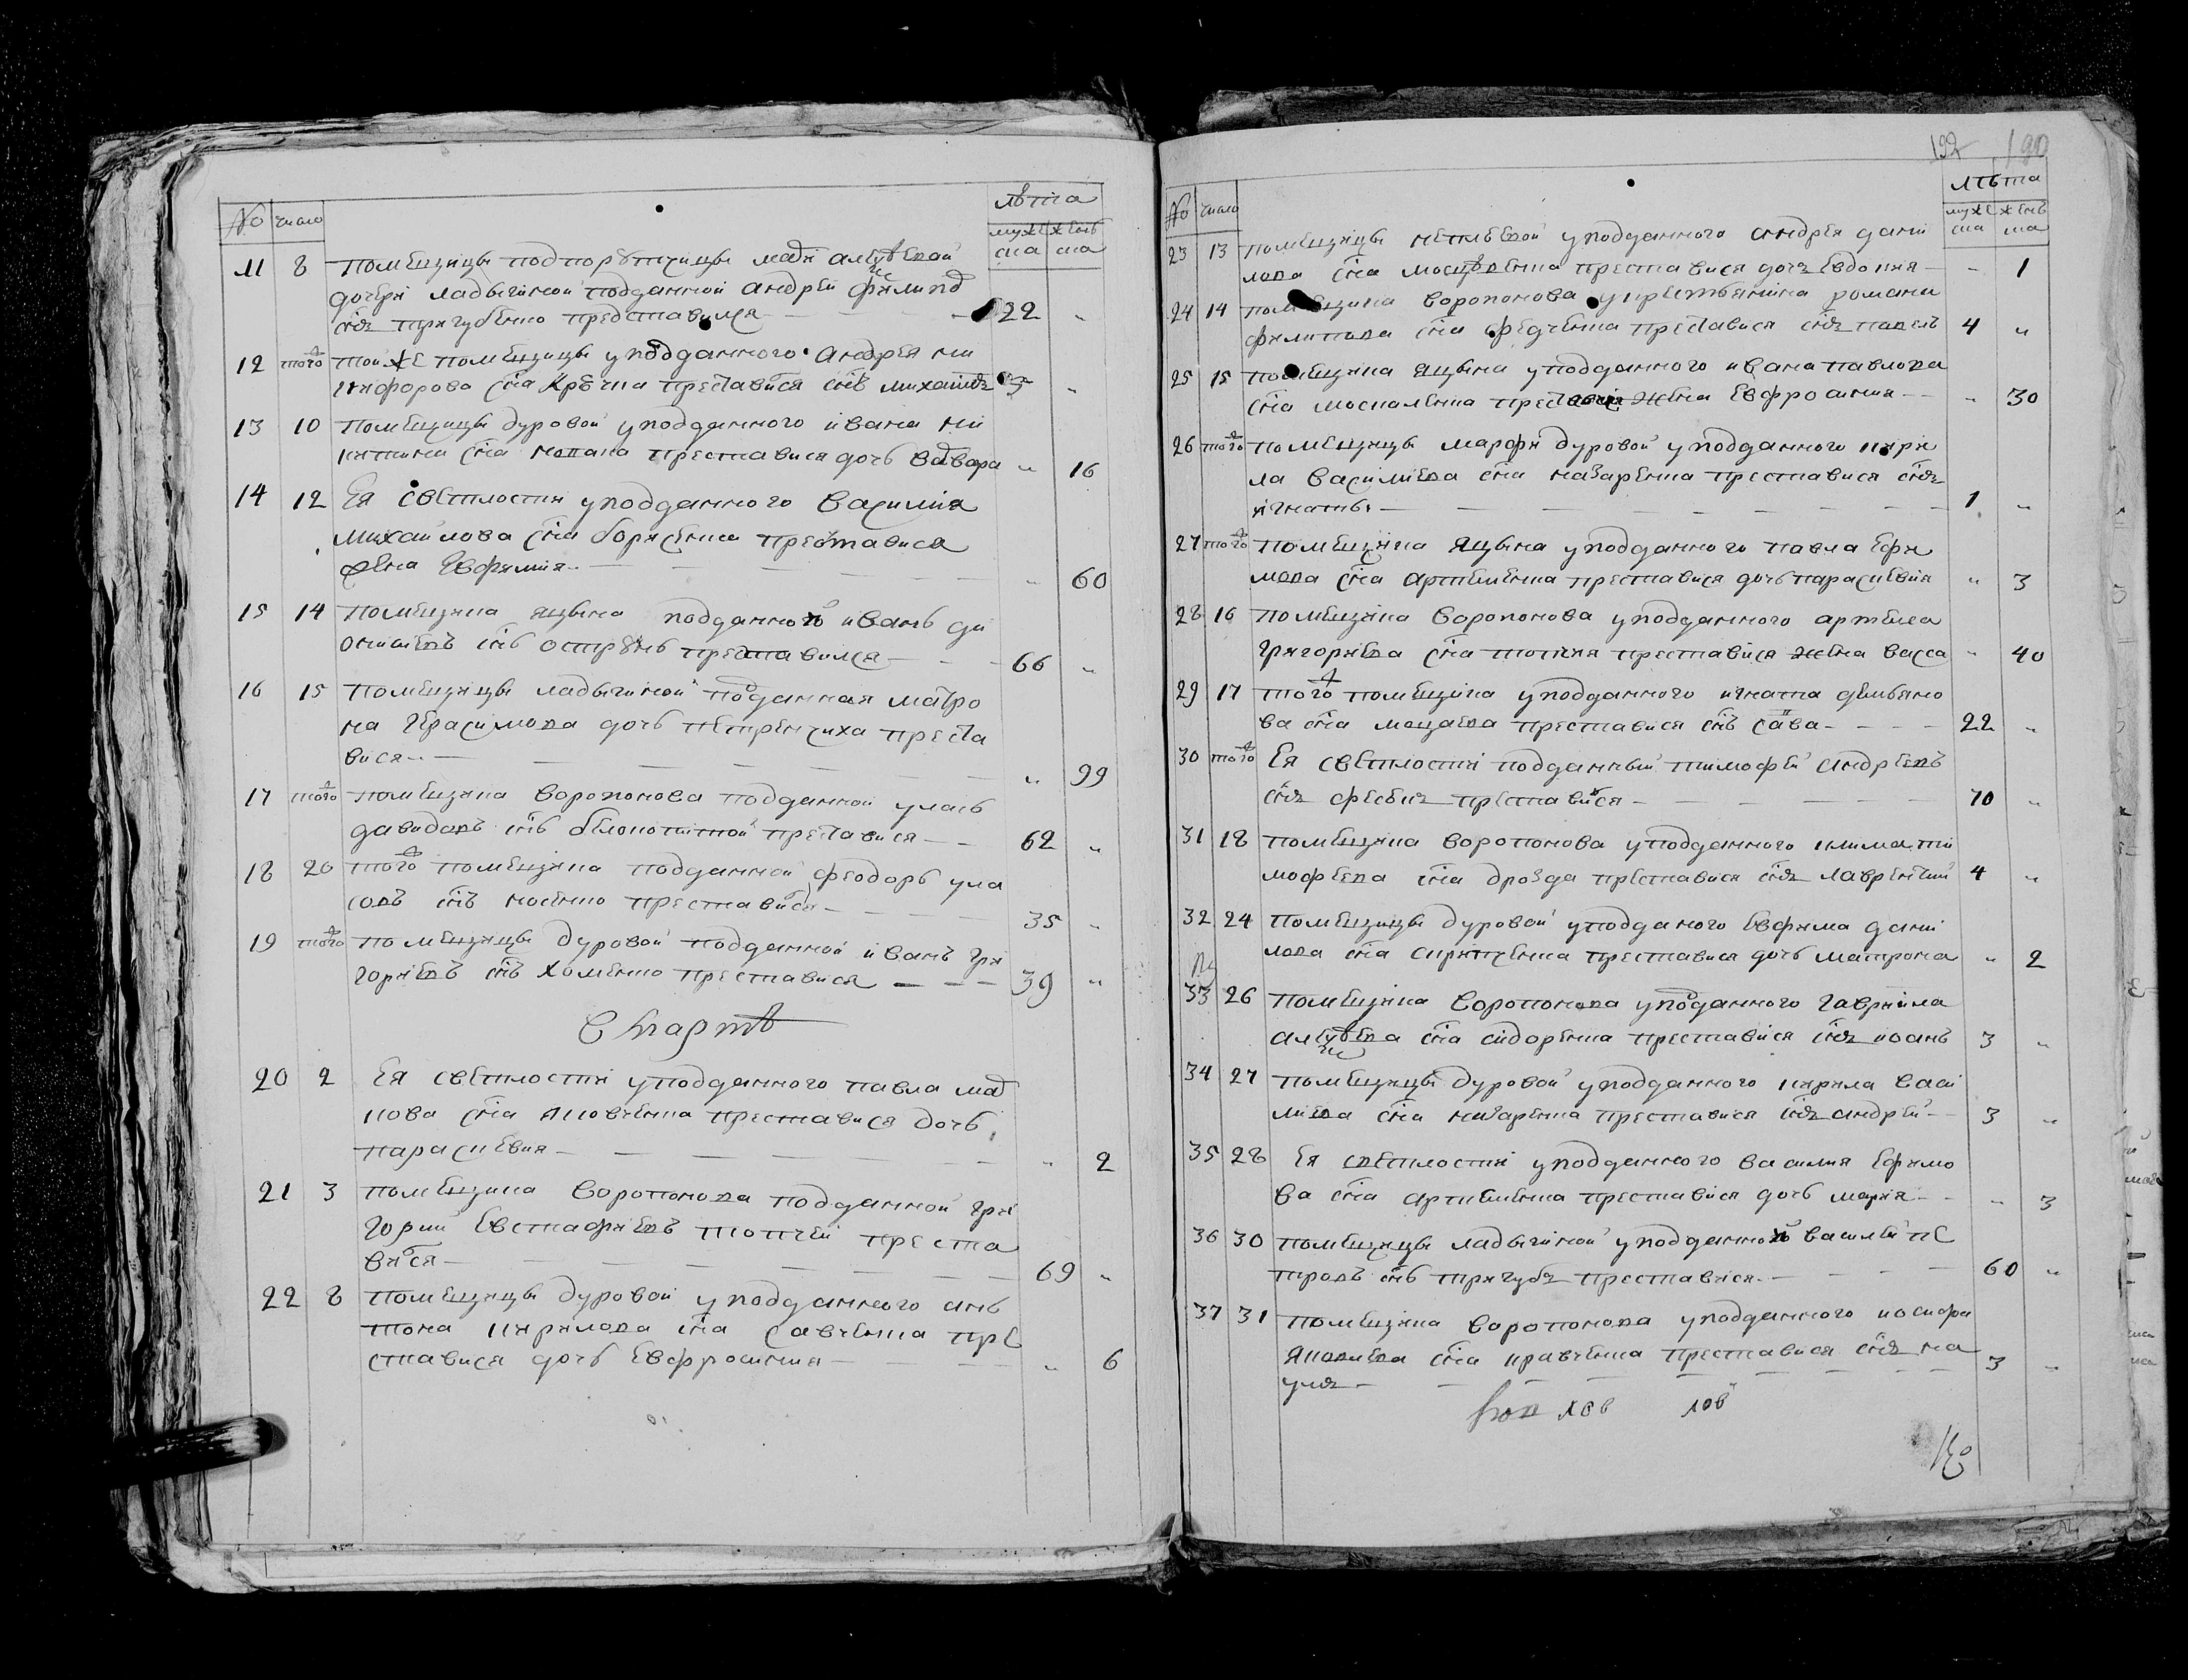 № число лѣта
мужеска женьска
11 8 помещицы подпорутчицы маріи алеѯѣевой
дочери ладыгиной подданной андрей филипов
снъ тригубенко преставился 22 „
12 того тойже помещицы у подданного андрея ни
кифорова сна кравчна преставися снъ михаилъ „
13 10 помещицы дуровой у подданного ивана ни
китина сна преставися дочь варвара „ 16
14 12 Ея светлости у подданного василия
михаилова сна борисенка преставися
жена Евфимия „ 60
15 14 помещика яцына подданной иванъ ди
онисиевъ снъ преставился 66 „
16 15 помещицы ладыгиной подданная матро
на герасимова дочь петренчиха преста
вися „ 99
17 того помещика воропонова подданной уласъ
давидовъ снъ белокопитной преставися 62 „
18 20 того помещика подданной феодоръ ула
совъ снъ носенко преставися 35 „
19 того помещицы дуровой подданной иванъ гри
гориевъ снъ хоменко преставися 39 „
В мартѣ
20 2 Ея светлости у подданного павла мар
кова сна яковченка преставися дочь
параскевия „ 2
21 3 помещика воропонова подданной гри
горий евстафиевъ топчей преста
вися 69 „
22 8 помещицы дуровой у подданного ань
тона кирилова сна савченка пре
ставися дочь Евфросиния „ 6
192 190
№ число лѣта
мужеска женьска
23 13 помещицы у подданного андрея дани
лова сна преставися дочь Евдокия „ 1
24 14 помещика воропонова у крестьянина романа
филипова сна федченка преставися снъ павелъ 4 „
25 15 помещика яцына у подданного ивана павлова
сна москаленка преставися жена Евфросиния „ 30
26 того помещицы марфи дуровой у подданного кири
ла василиева сна назаренка преставися снъ
игнатъ 1 „
27 того помещика яцына у подданного павла ефи
мова сна артеменка преставися дочь параскевия „ 3
28 16 помещика воропонова у подданного артема
григориева сна топчия преставися жена васса „ 40
29 17 того помещика у подданного игната демьяно
ва сна преставися снъ сава 22 „
30 того Ея светлости подданный тимофей андреевъ
снъ преставися 70 „
31 18 помещика воропонова у подданного клима ти
мофеева сна дрозда преставися снъ лаврентий 4 „
32 24 помещицы дуровой у подданого Евфима дани
лова сна преставися дочь матрона „ 2
33 26 помещика воропонова у подданного гавриила
алеѯѣева сна сидоренка преставися снъ иоанъ 3 „
34 27 помещицы дуровой у подданного кирила васи
лиева сна назаренка преставися снъ андрей 3 „
35 28 Ея светлости у подданного василия Ефимо
ва сна артеменка преставися дочь мария „ 3
36 30 помещицы ладыгиной у подданной василий пе
тровъ снъ тригубъ преставися 60 „
37 31 помещика воропонова у подданного иосифа
яковлева сна кравченка преставися снъ на
умъ 3 „